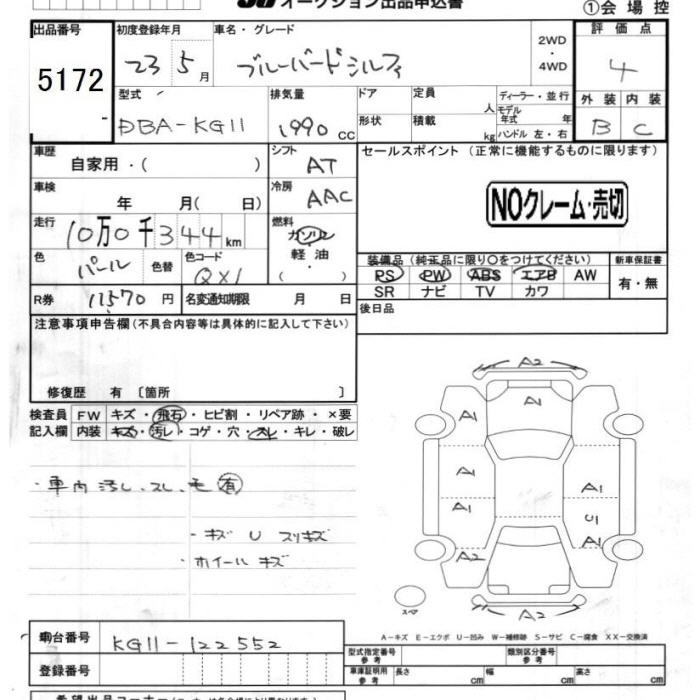 オークション出品申込書
①会場控
出品番号
5172
初度登録年月
23 5月
車名・グレード
ブルーバードシルフィ
2WD
・
4WD
評価点
4
外装 内装
B C
型式
DBA-KG11
排気量
1990 cc
ドア
定員
人
ディーラー・並行
モデル年式 年
形状
積載
kg
ハンドル 左・右
車歴
自家用・( )
シフト
AT
車検
年 月( 日)
冷房
AAC
走行
10万0千344km
燃料
ガソリン
軽油
・( )
色
パール
色替
色コード
QX1
R券
11570円
名変通知期限 月 日
セールスポイント (正常に機能するものに限ります)
NOクレーム・売切
装備品(純正品に限り○をつけてください)
PS PW ABS エアB AW
SR ナビ TV カワ
新車保証書
有・無
後日品
注意事項申告欄(不具合内容等は具体的に記入して下さい)
修復歴 有 〔箇所 〕
検査員 FW キズ・飛石・ヒビ割・リペア跡・×要
記入欄 内装 キズ・汚レ・コゲ・穴・スレ・キレ・破レ
・車内汚レ、スレ、モ有
・キズ U スリキズ
・ホイールキズ
A2
A1
A1
A1
A1
A1
U1
A1
A2
A2
A2
スペア
A-キズ E-エクボ U-凹み W-補修跡 S-サビ C-腐食 XX-交換済
車台番号
KG11-122552
登録番号
型式指定番号 参考
類別区分番号 参考
車庫証明用 参考
長さ cm
幅 cm
高さ cm
希望出品コーナー